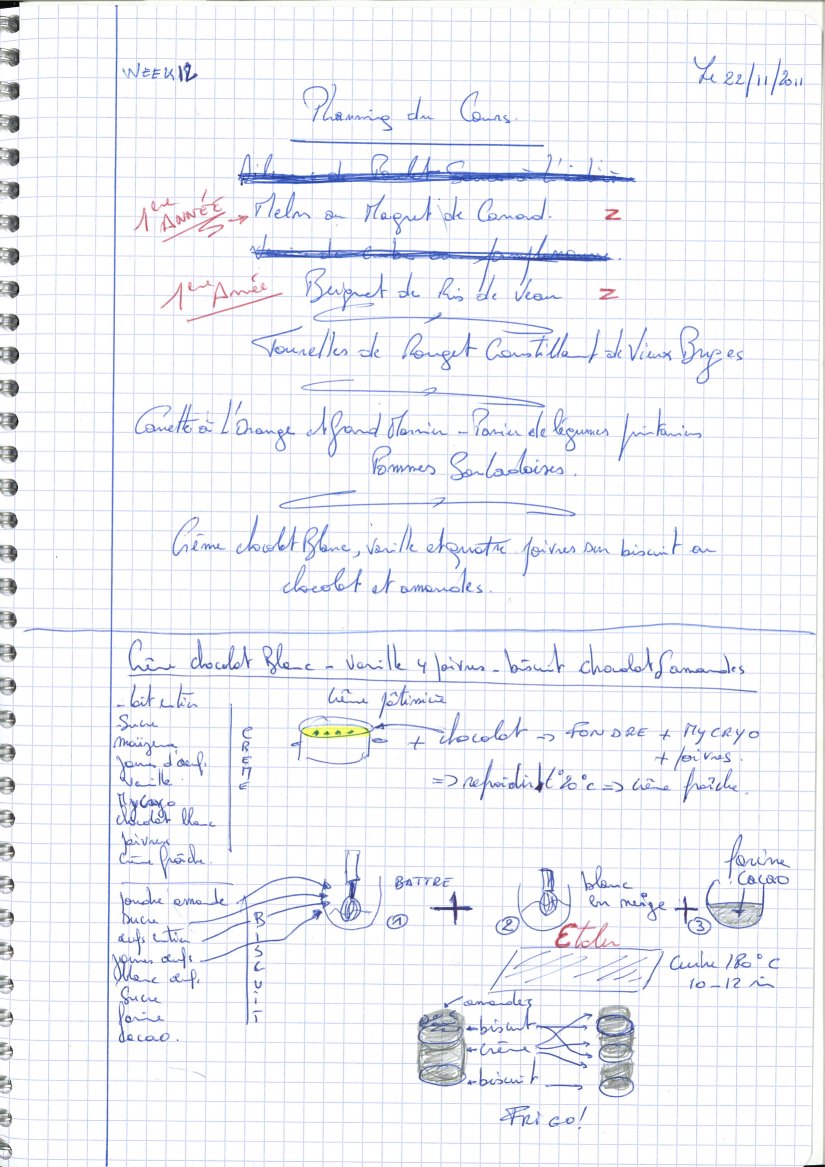 WEEK 12
Le 22/11/2011
Planning du Cours.
1ère ANNÉE
Melon au Magret de Canard. Z
1ère Année
Beignet de Ris de Veau Z
Tourelles de Rouget Croustillant de Vieux Bruges
Canette à l'Orange et Grand Marnier - Panier de légumes printaniers
Pommes Sarladaises.
Crème chocolat Blanc, vanille et quatre poivres sur biscuit au
chocolat et amandes.
Crème chocolat Blanc - vanille 4 poivres - biscuit chocolat amandes
- lait entier
Sucre
maïzena
jaunes d'œufs
vanille
Mycryo
chocolat blanc
poivres
crème fraîche.
CREME
Crème pâtissière
+ chocolat => FONDRE + MYCRYO
+ poivres.
=> refroidir t° 20°C => crème fraîche.
poudre amande
Sucre
œufs entier
jaunes œufs
blanc œufs
Sucre
farine
cacao.
BISCUIT
BATTRE
1
+
2
blanc
en neige
+
3
farine
cacao
Etaler
Cuire 180°C
10-12 min
amandes
biscuit
crème
biscuit
FRIGO!